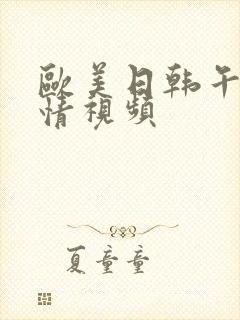 歐美日韩午
情視頻
夏童童